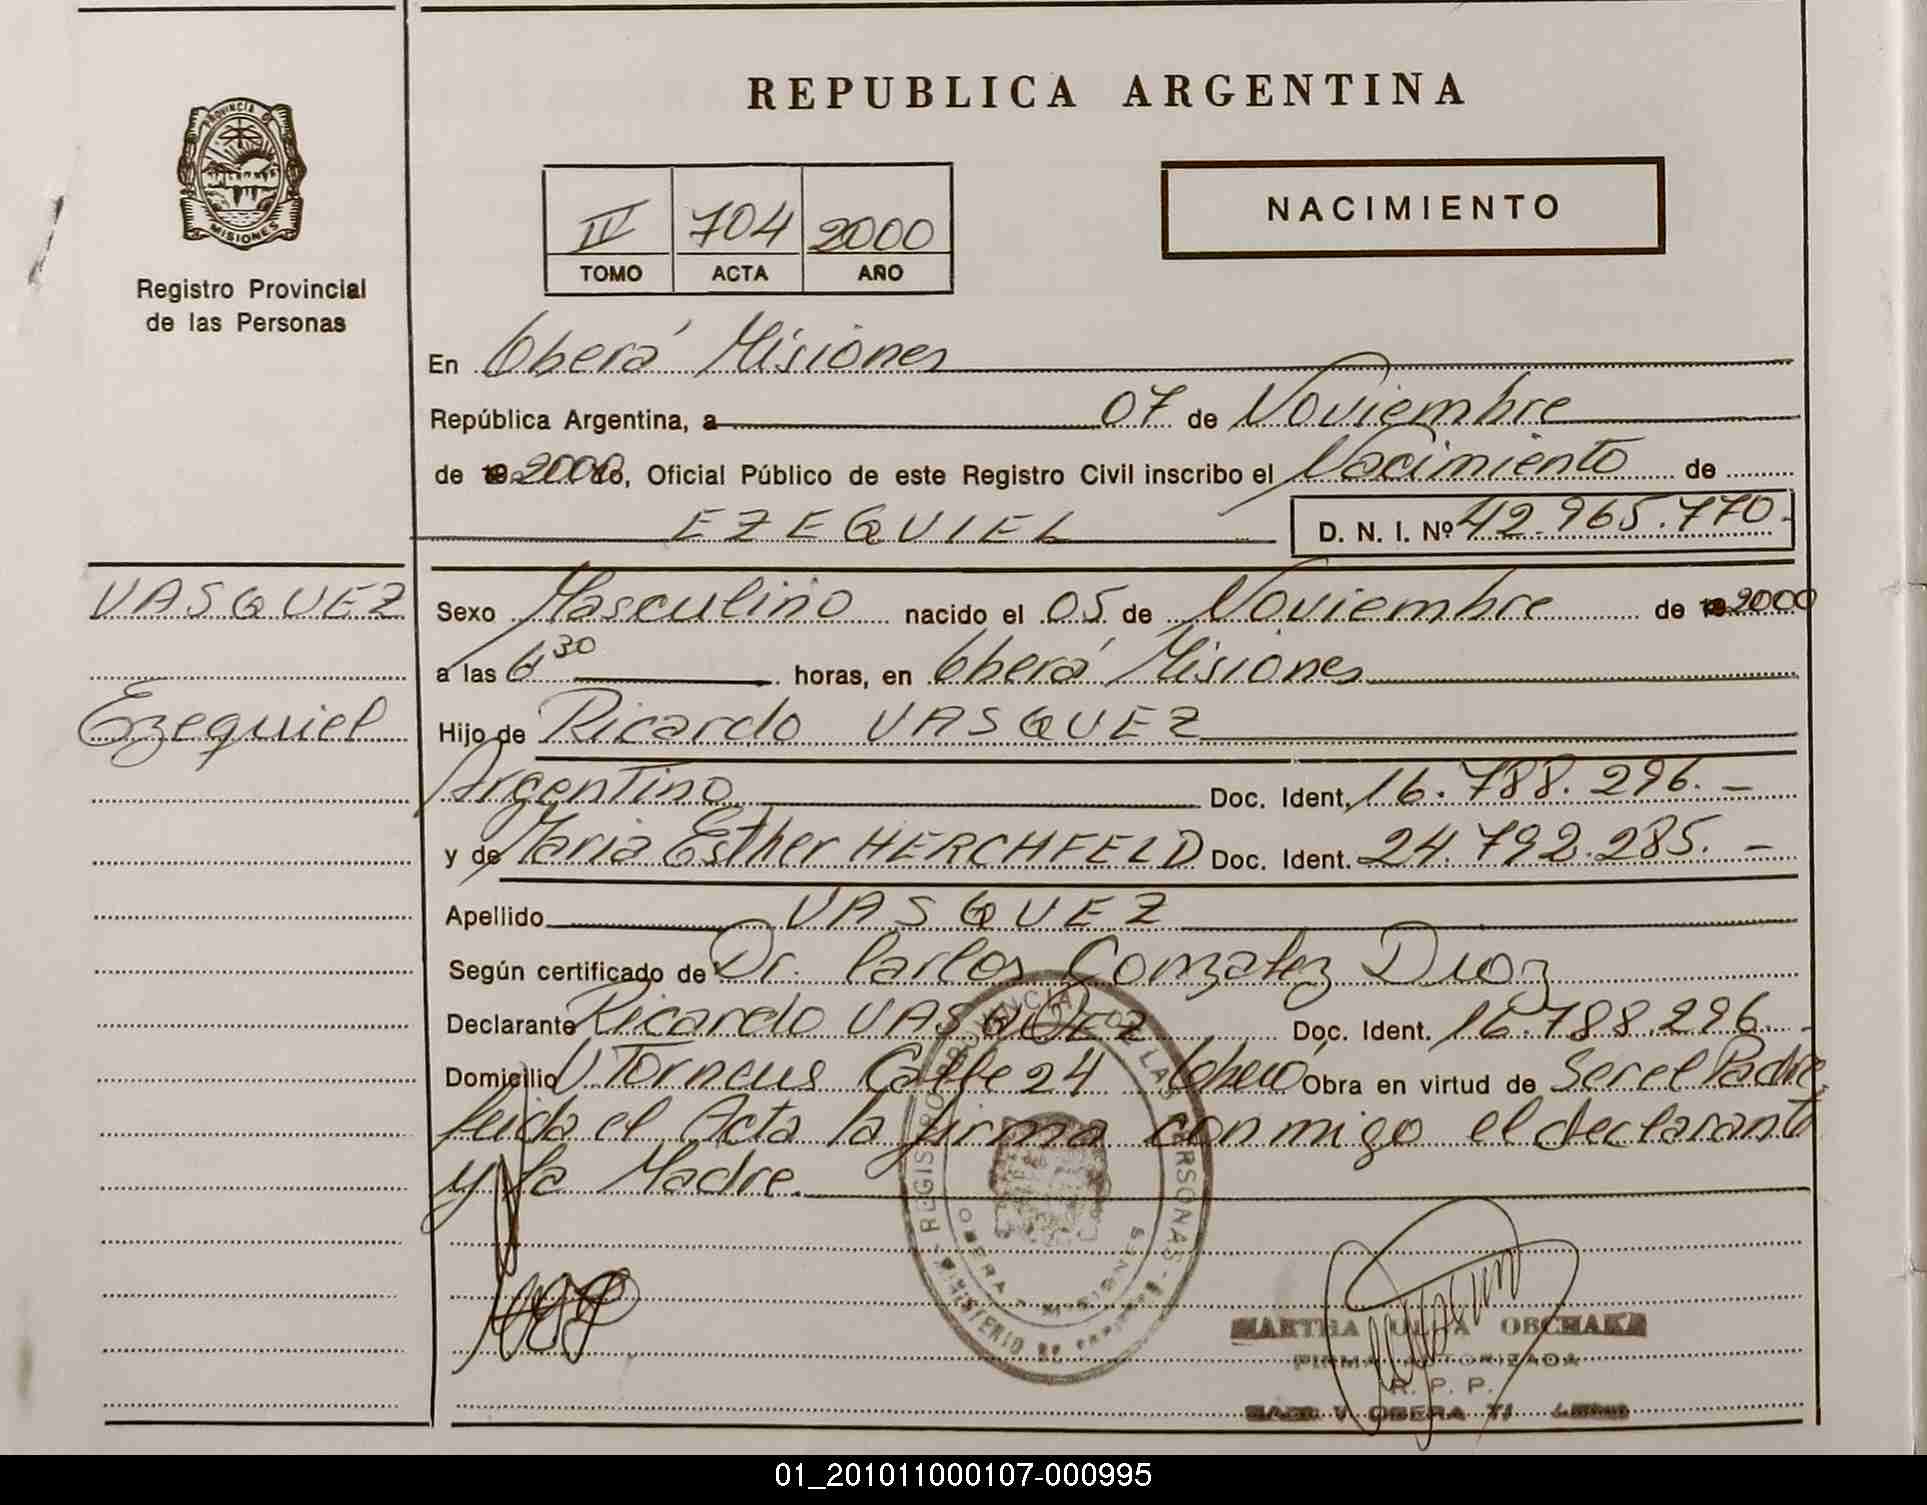 PROVINCIA DE
MISIONES
Registro Provincial
de las Personas
REPUBLICA ARGENTINA
NACIMIENTO
IV 704 2000
TOMO ACTA AÑO
En Oberá Misiones
República Argentina, a 07 de Noviembre
de 19 2000 yo, Oficial Público de este Registro Civil inscribo el Nacimiento de
EZEQUIEL D. N. I. Nº 42.965.770.
VASQUEZ
Ezequiel
Sexo Masculino nacido el 05 de Noviembre de 19 2000
a las 6 30 horas, en Oberá Misiones
Hijo de Ricardo VASQUEZ
Argentino Doc. Ident. 16.788.296.-
y de Maria Esther HERCHFELD Doc. Ident. 24.792.285.-
Apellido VASQUEZ
Según certificado de Dr. Carlos Gonzalez Diaz
Declarante Ricardo VASQUEZ Doc. Ident. 16.788.296.-
Domicilio V Torneus Calle 24 Oberá Obra en virtud de Ser el Padre
leida el Acta la firma conmigo el declarante
y la Madre.
REGISTRO PROVINCIAL DE LAS PERSONAS
OBERA - MISIONES
MINISTERIO DE
MARTHA OLGA OBCHAKA
FIRMA AUTORIZADA
R. P. P.
OBERA
01_201011000107-000995